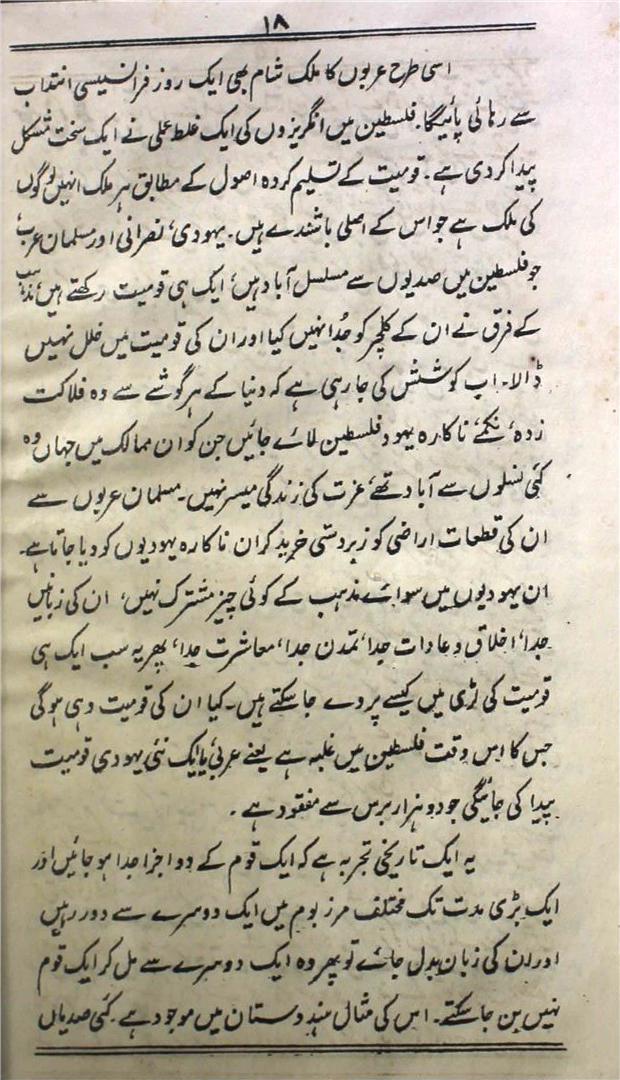 ۱۸
اسی طرح عربوں کا ملک شام بھی ایک روز فرانسیسی انتداب
سے رہائی پائیگا۔ فلسطین میں انگریزوں کی ایک غلط عملی نے ایک سخت مشکل
پیدا کر دی ہے۔ قومیت کے تسلیم کردہ اصول کے مطابق ہر ملک انہیں لوگوں
کی ملک ہے جو اس کے اصلی باشندے ہیں۔ یہودی، نصرانی اور مسلمان عرب،
جو فلسطین میں صدیوں سے مسلسل آباد ہیں، ایک ہی قومیت رکھتے ہیں، مذاہب
کے فرق نے ان کے کلچر کو جُدا نہیں کیا اور ان کی قومیت میں خلل نہیں
ڈالا۔ اب کوشش کی جا رہی ہے کہ دنیا کے ہر گوشے سے وہ فلاکت
زدہ، نکمّے، ناکارہ یہود فلسطین لائے جائیں جن کو ان ممالک میں جہاں وہ
کئی نسلوں سے آباد تھے، عزت کی زندگی میسر نہیں۔ مسلمان عربوں سے
ان کی قطعات اراضی کو زبردستی خرید کر ان ناکارہ یہودیوں کو دیا جاتا ہے۔
ان یہودیوں میں سوائے مذہب کے کوئی چیز مشترک نہیں، ان کی زبانیں
جدا، اخلاق و عادات جدا، تمدن جدا، معاشرت جدا، پھر یہ سب ایک ہی
قومیت کی لڑی میں کیسے پروے جا سکتے ہیں۔ کیا ان کی قومیت وہی ہوگی
جس کا اس وقت فلسطین میں غلبہ ہے یعنے عربی یا ایک نئی یہودی قومیت
پیدا کی جائیگی جو دو ہزار برس سے مفقود ہے۔
یہ ایک تاریخی تجربہ ہے کہ ایک قوم کے دو اجزا جدا ہو جائیں اور
ایک بڑی مدت تک مختلف مرز بوم میں ایک دوسرے سے دور رہیں
اور ان کی زبان بدل جائے تو پھر وہ ایک دوسرے سے مل کر ایک قوم
نہیں بن جا سکتے۔ اس کی مثال ہندوستان میں موجود ہے۔ کئی صدیاں